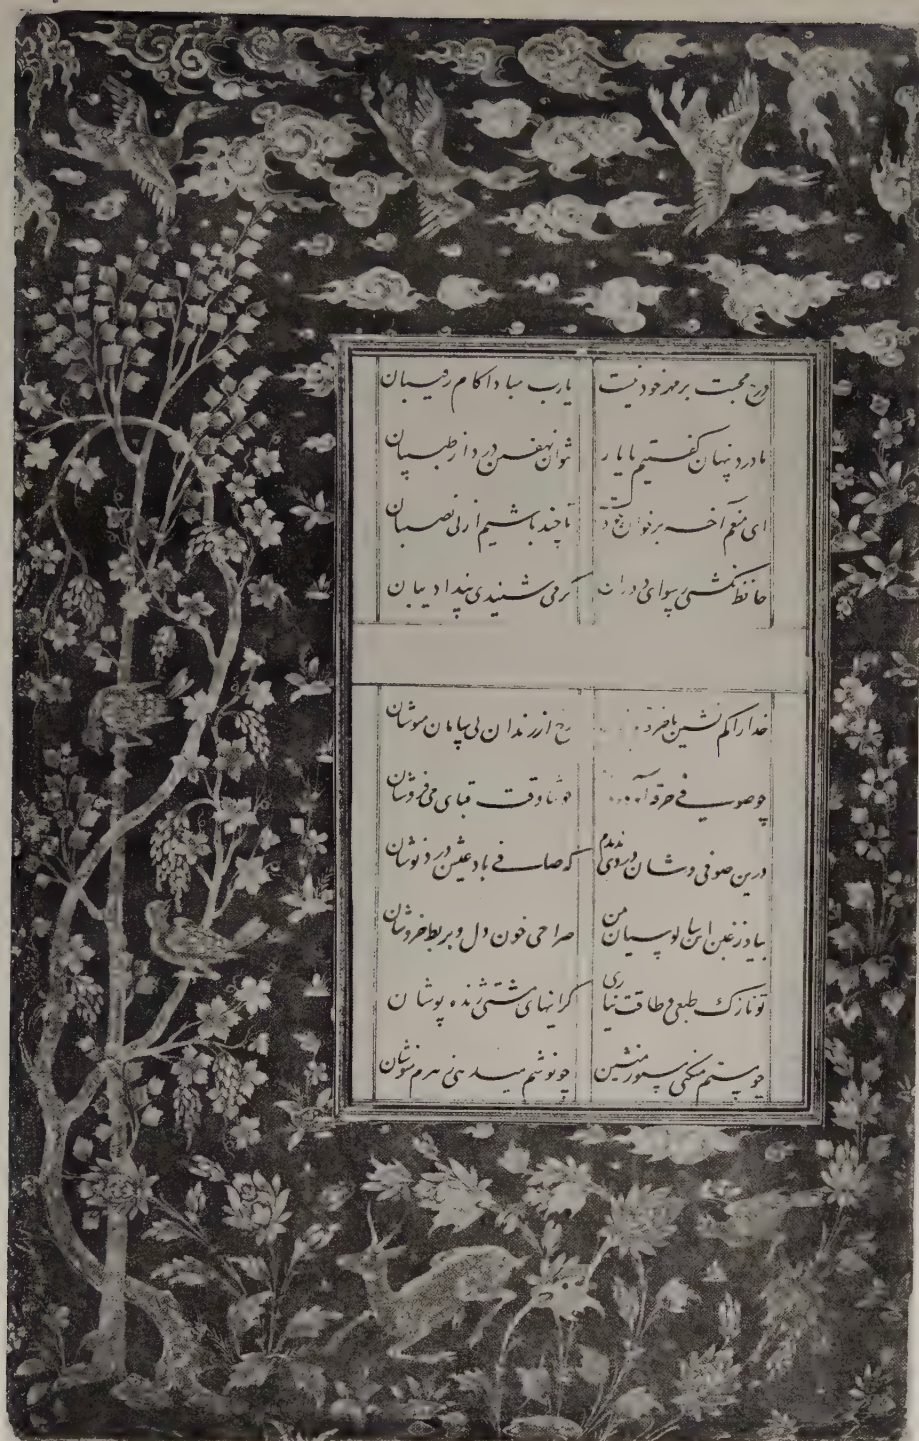 درج محبت بر مهر خود نیست یارب مبادا کام رقیبان
ما درد پنهان گفتیم با یار نتوان نهفتن درد از طبیبان
ای منعم آخر بر خوان تا چند باشیم از بی نصیبان
حافظ نگشتی رسوای دوران گر می شنیدی پند ادیبان
خدا را کم نشین با خرقه رخ از رندان بی سامان مپوشان
چو صوفی خرقه خوشا وقت قبای می فروشان
درین صوفی وشان دردی ندیدم که صافی باد عیش درد نوشان
بیا وز غبن این سالوسیان من صراحی خون دل و بربط خروشان
تو نازک طبعی و طاقت نیاری گرانیهای مشتی ژنده پوشان
چو مستم منشین چو نوشم